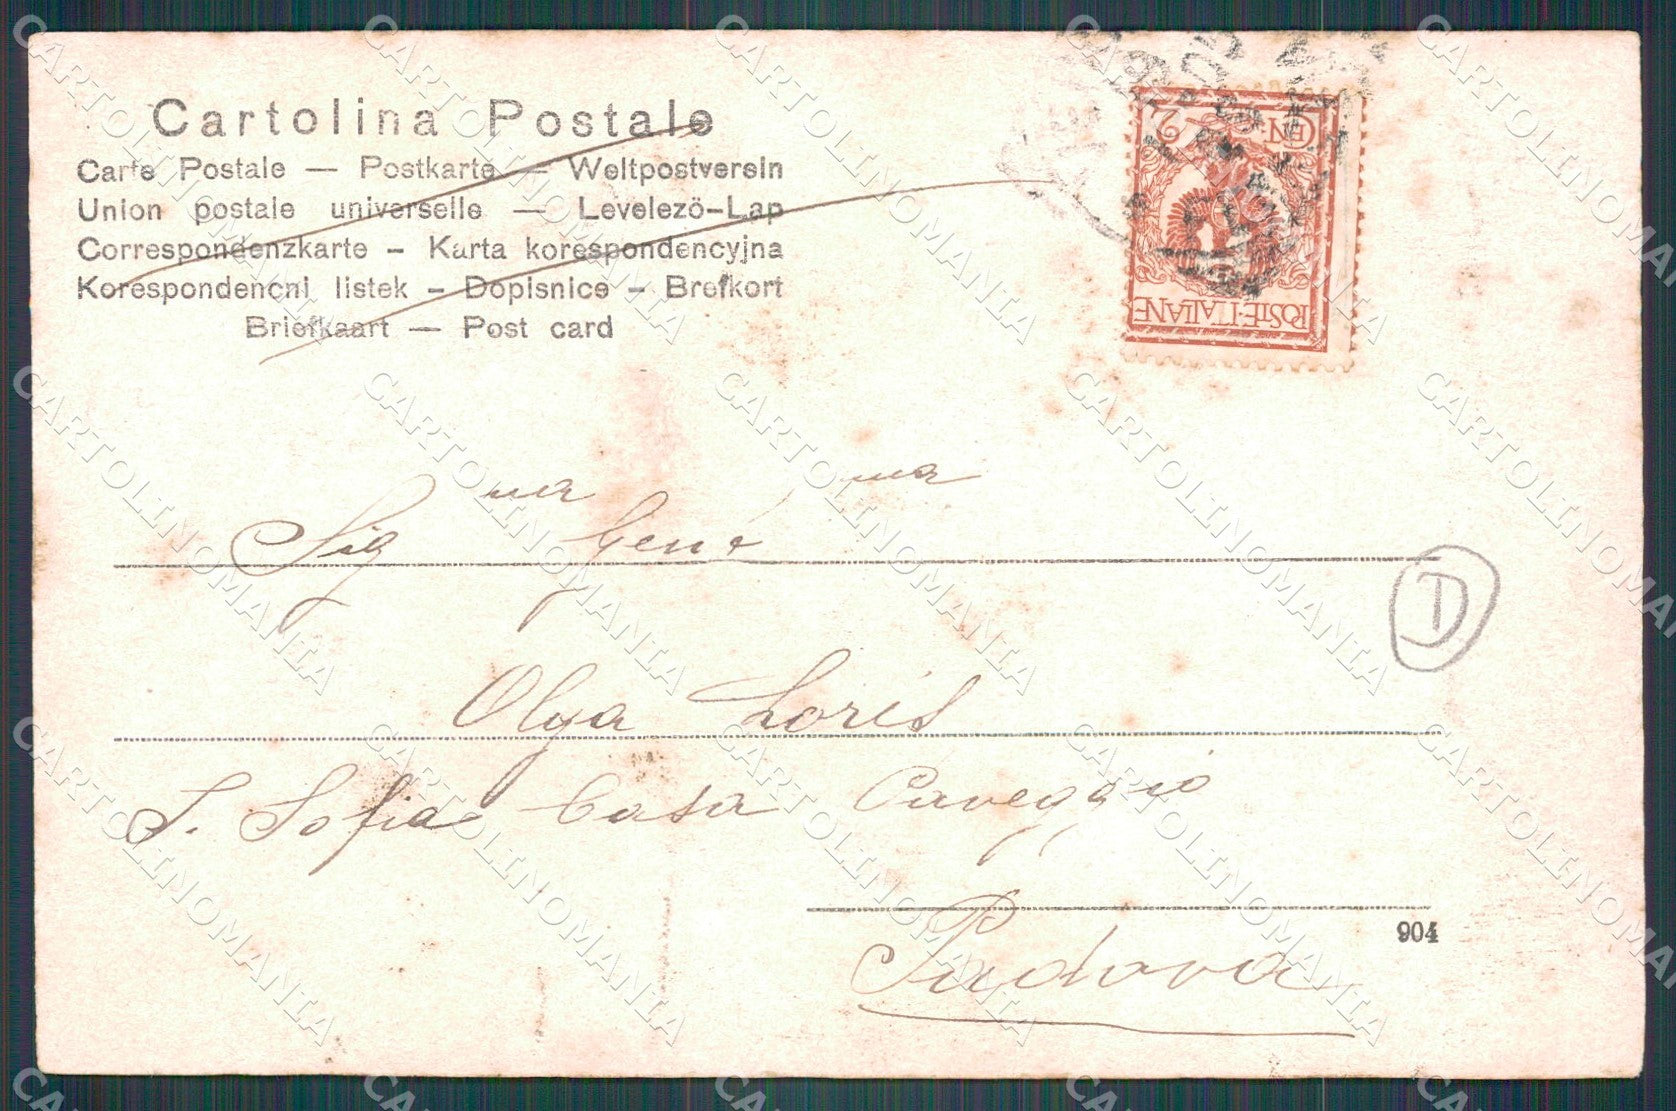 Cartolina Postale
Carte Postale — Postkarte — Weltpostverein
Union postale universelle — Levelezö-Lap
Correspondenzkarte – Karta korespondencyjna
Korespondencni listek – Dopisnice – Brefkort
Briefkaart — Post card
CEN 2
POSTE·ITALIANE
Sig na Gent ma
Olga Loris
S. Sofia Casa Caveggio
Padova
904
D
CARTOLINOMANIA